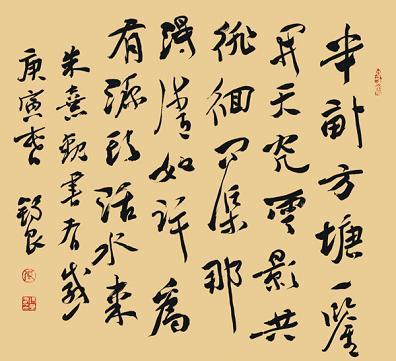 半畝方塘一鑒
開天光雲影共
徘徊問渠那
得清如許為
有源頭活水来
朱熹觀書有感
庚寅春 錫良